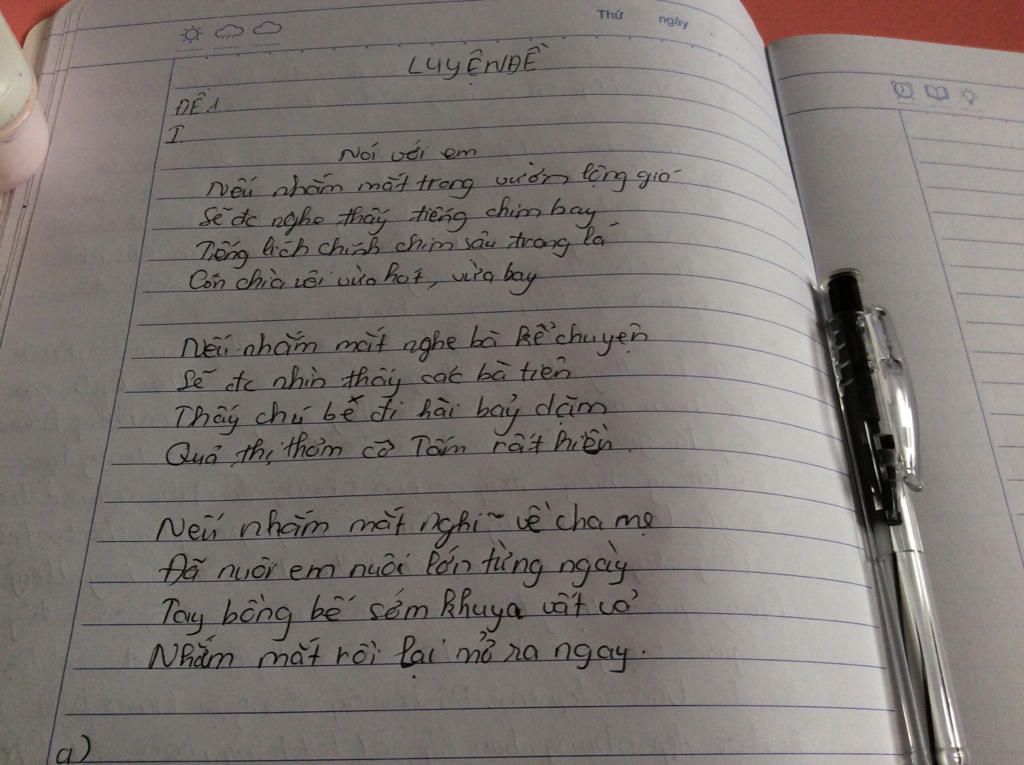 Thứ ngày
LUYỆN ĐỀ
ĐỀ 1
I.
Nói với em
Nếu nhắm mắt trong vườn lộng gió
Sẽ đc nghe thấy tiếng chim bay
Tiếng lích chích chim sâu trong lá
Con chìa vôi vừa hót, vừa bay
Nếu nhắm mắt nghe bà kể chuyện
Sẽ đc nhìn thấy các bà tiên
Thấy chú bé đi hài bảy dặm
Quả thị thơm cô Tấm rất hiền.
Nếu nhắm mắt nghĩ về cha mẹ
Đã nuôi em nuôi lớn từng ngày
Tay bồng bế sớm khuya vất vả
Nhắm mắt rồi lại mở ra ngay.
a)